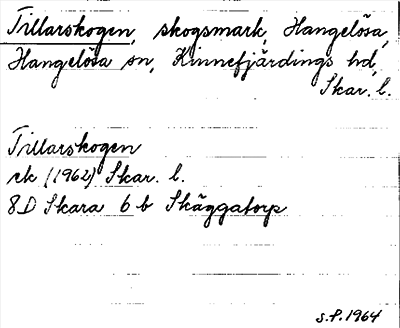 Tillarskogen, skogsmark, Hangelösa,
Hangelösa sn, Kinnefjärdings hd,
Skar. l.
Tillarskogen
ek (1962) Skar. l.
8D Skara 6 b Skäggatorp
S.P. 1964